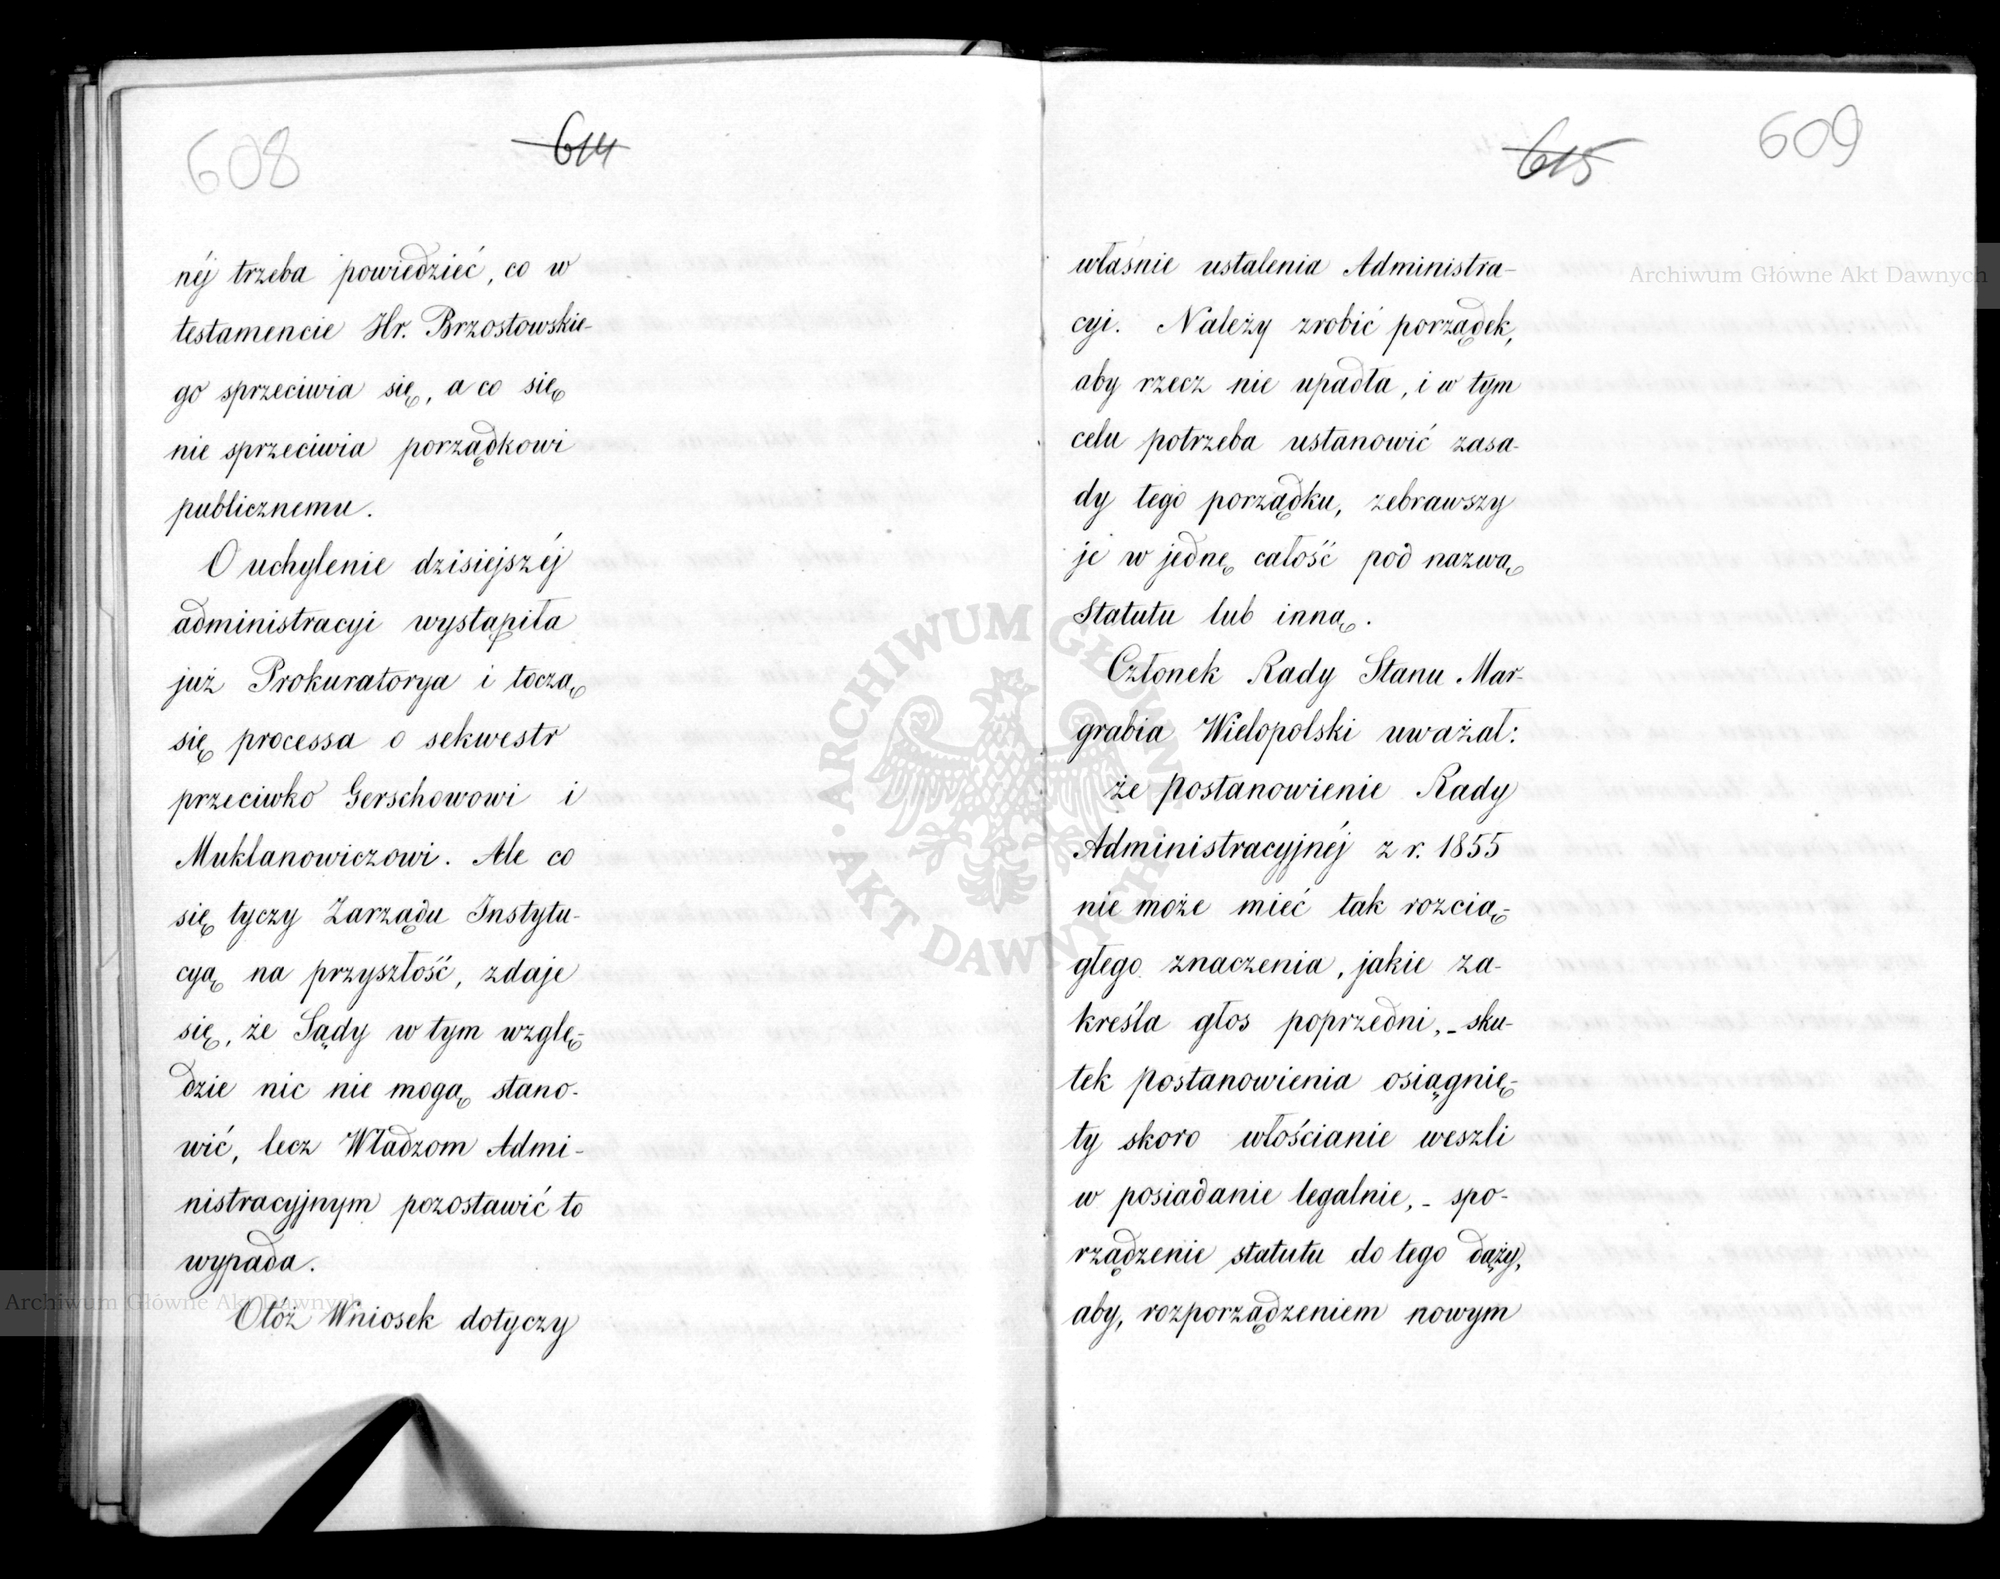 608
614
néj trzeba powiedzieć, co w
testamencie Hr. Brzostowskie-
go sprzeciwia się, a co się
nie sprzeciwia porządkowi
publicznemu.
O uchylenie dzisiejszéj
administracyi wystąpiła
już Prokuratorya i toczą
się processa o sekwestr
przeciwko Gerschowowi i
Muklanowiczowi. Ale co
się tyczy Zarządu Instytu-
cyą na przyszłość, zdaje
się, że Sądy w tym wzglę-
dzie nic nie mogą stano-
wić, lecz Władzom Admi-
nistracyjnym pozostawić to
wypada.
Otóż Wniosek dotyczy
615
609
właśnie ustalenia Administra-
cyi. Należy zrobić porządek,
aby rzecz nie upadła, i w tym
celu potrzeba ustanowić zasa-
dy tego porządku, zebrawszy
je w jednę całość pod nazwą
Statutu lub inną.
Członek Rady Stanu Mar-
grabia Wielopolski uważał:
że postanowienie Rady
Administracyjnéj z r. 1855
nie może mieć tak rozcią-
głego znaczenia, jakie za-
kreśla głos poprzedni, - sku-
tek postanowienia osiągnię-
ty skoro włościanie weszli
w posiadanie legalnie, - spo-
rządzenie statutu do tego dąży,
aby, rozporządzeniem nowym
Archiwum Główne Akt Dawnych
Archiwum Główne Akt Dawnych
ARCHIWUM GŁÓWNE · AKT DAWNYCH ·